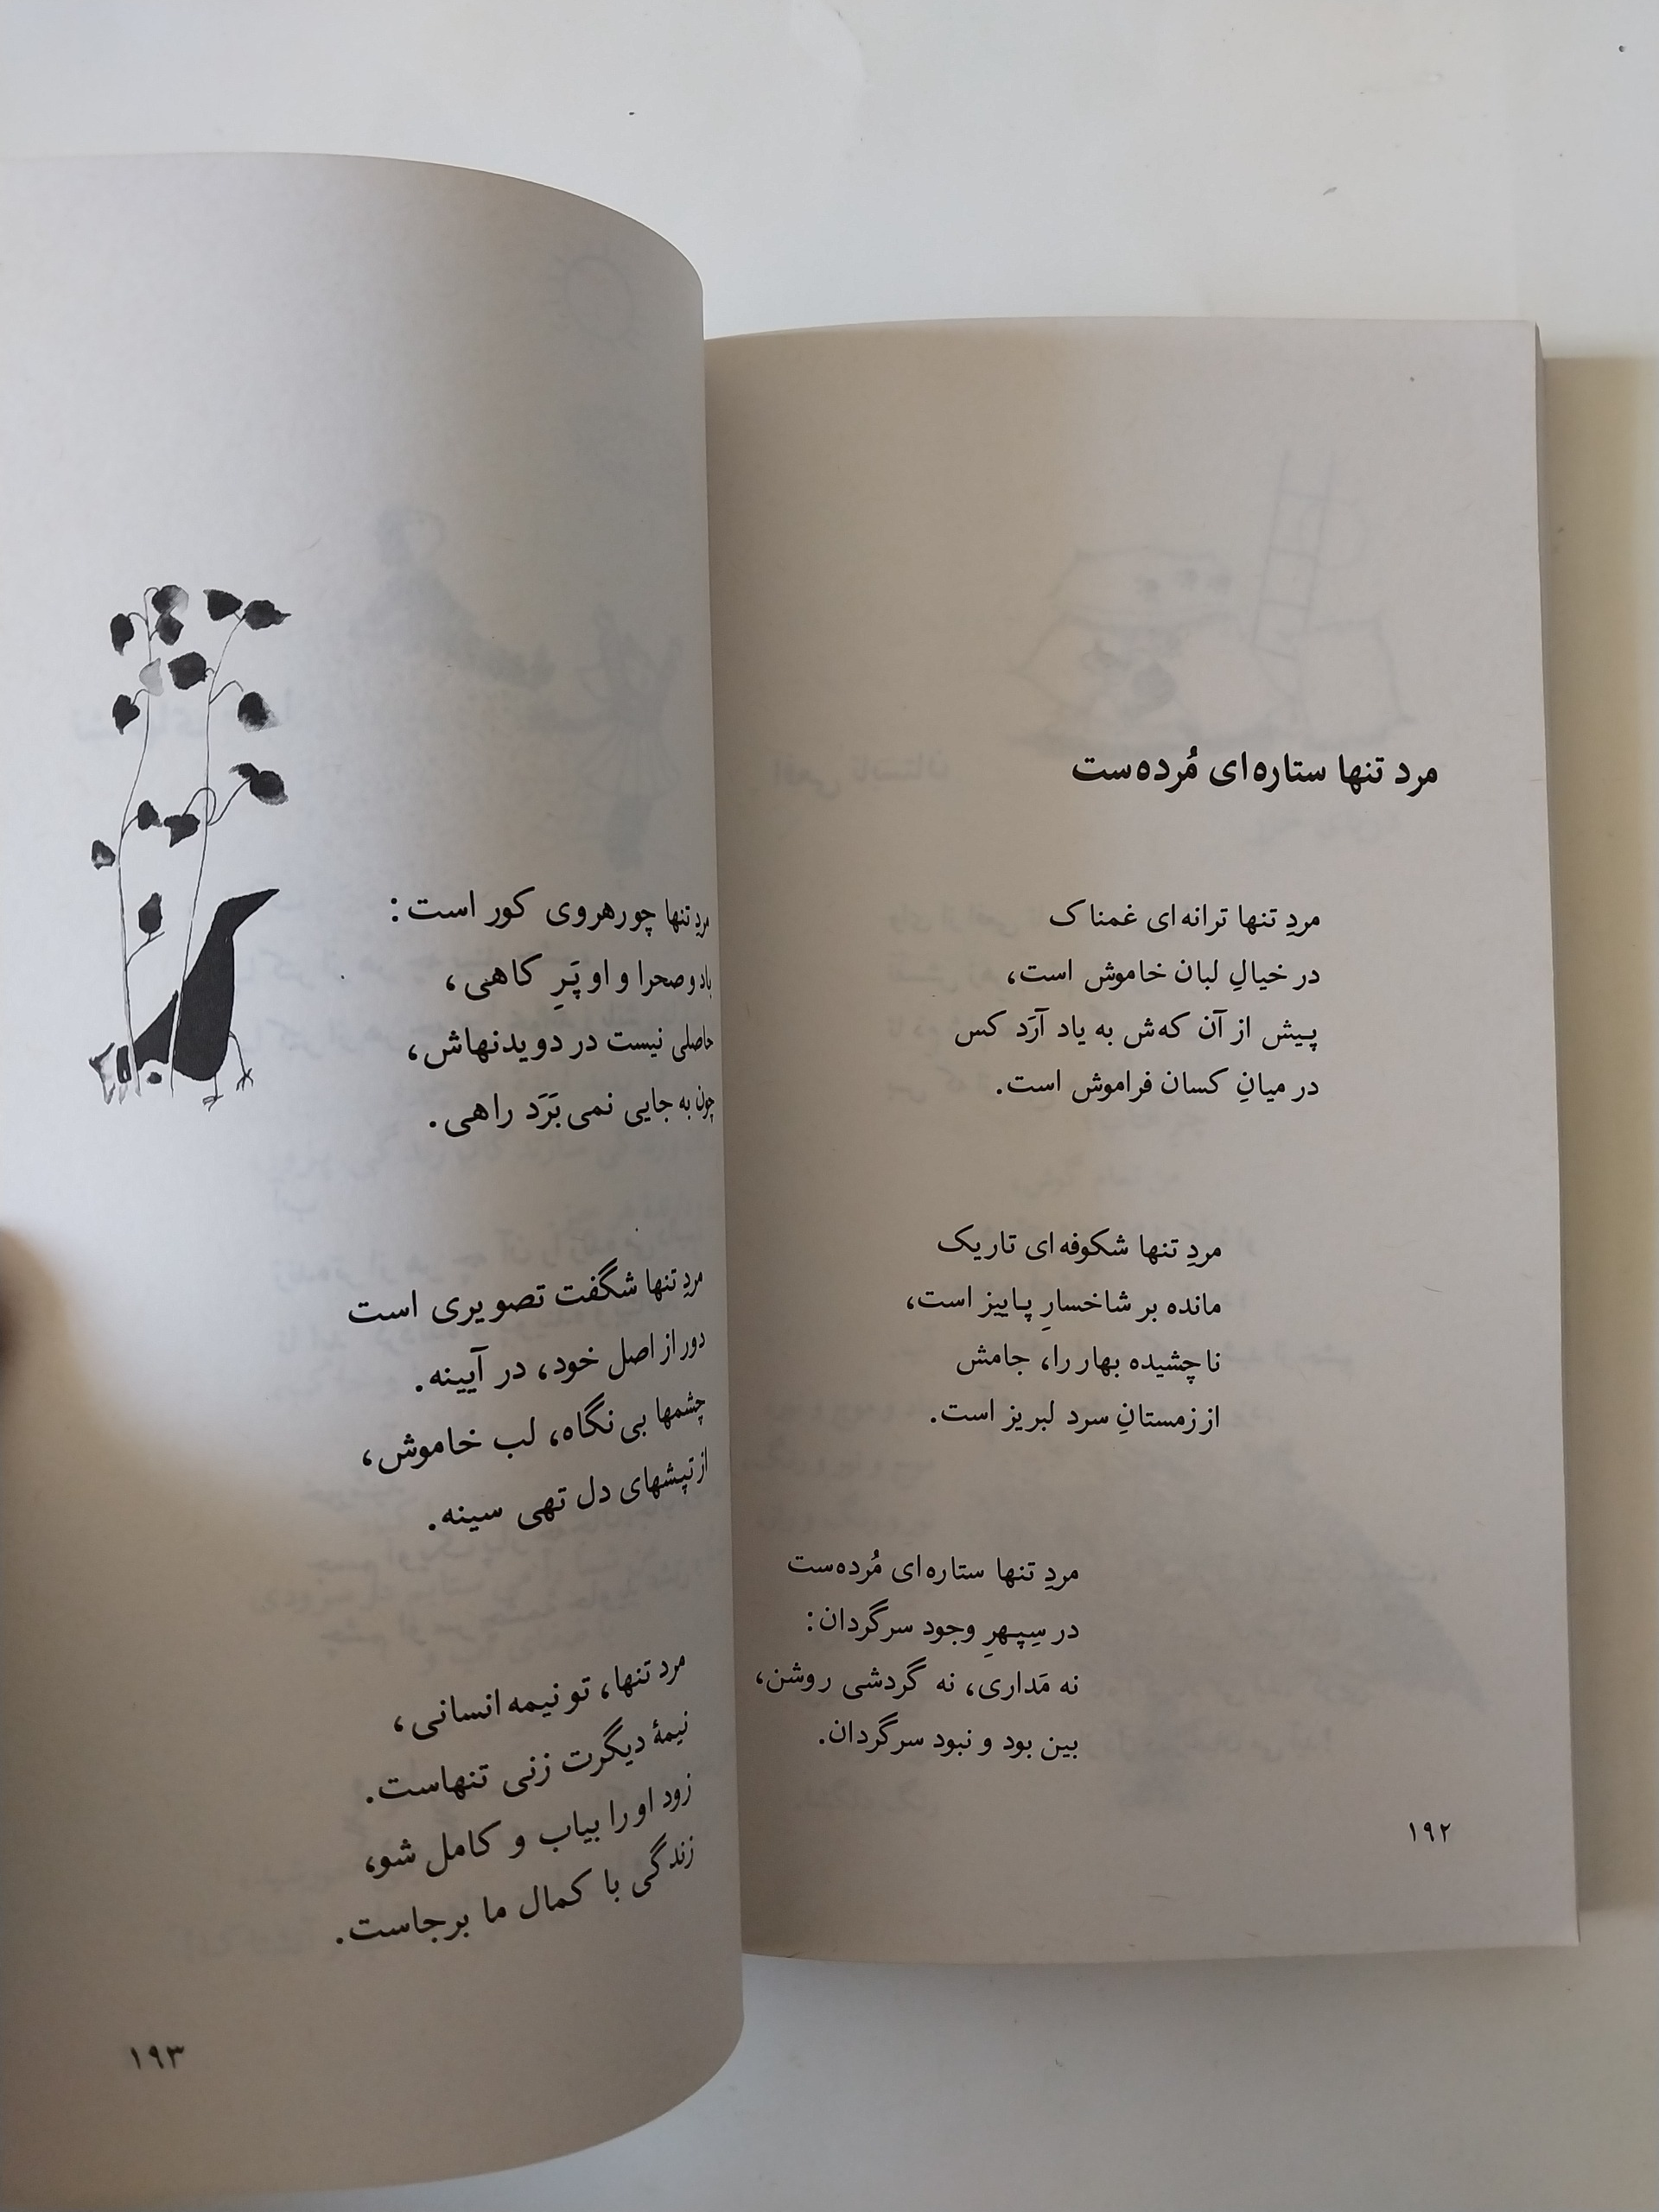 مرد تنها ستاره‌ای مُرده‌ست
مردِ تنها ترانه‌ای غمناک
در خیالِ لبان خاموش است،
پیش از آن که‌ش به یاد آرَد کس
در میانِ کسان فراموش است.
مردِ تنها شکوفه‌ای تاریک
مانده بر شاخسارِ پاییز است،
ناچشیده بهار را، جامش
از زمستانِ سرد لبریز است.
مردِ تنها ستاره‌ای مُرده‌ست
در سِپهرِ وجود سرگردان:
نه مَداری، نه گردشی روشن،
بین بود و نبود سرگردان.
۱۹۲
مردِ تنها چو رهروی کور است:
باد و صحرا و او پَرِ کاهی،
حاصلی نیست در دویدنهاش،
چون به جایی نمی‌بَرَد راهی.
مردِ تنها شگفت تصویری است
دور از اصل خود، در آیینه.
چشمها بی‌نگاه، لب خاموش،
از تپشهای دل تهی سینه.
مرد تنها، تو نیمه انسانی،
نیمهٔ دیگرت زنی تنهاست.
زود او را بیاب و کامل شو،
زندگی با کمال ما برجاست.
۱۹۳